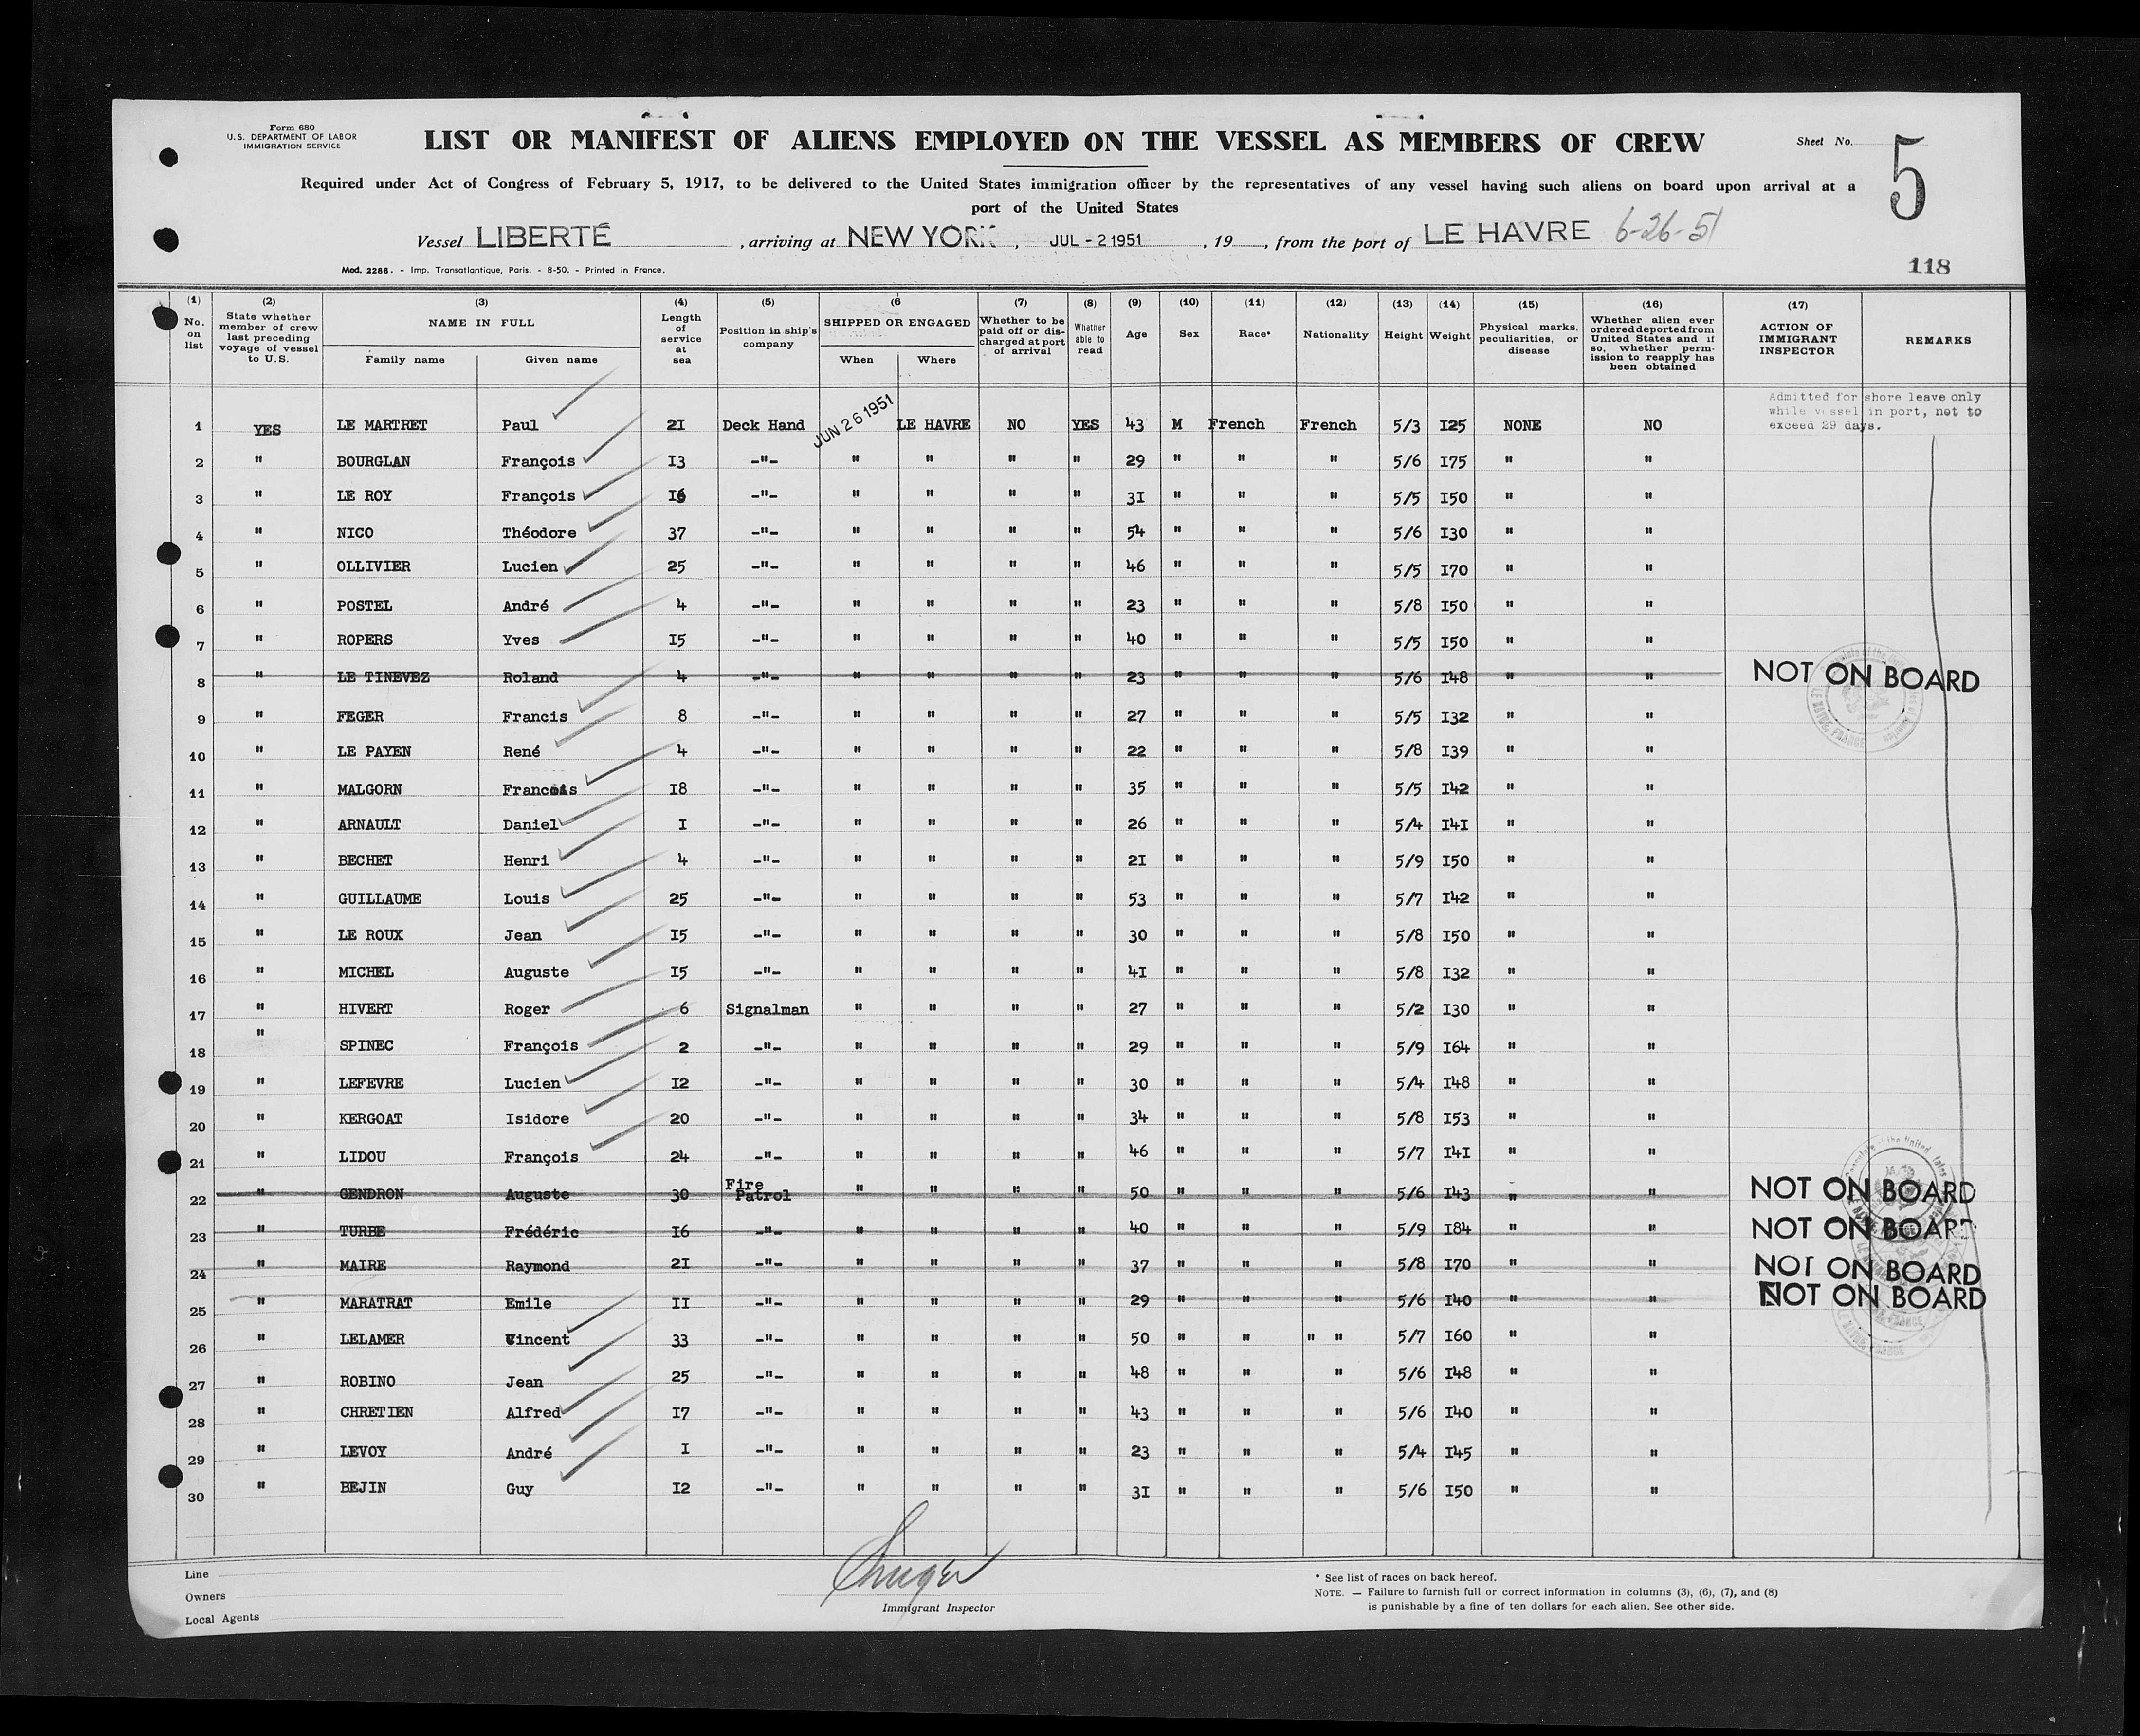 Form 680
U.S. DEPARTMENT OF LABOR
IMMIGRATION SERVICE
LIST OR MANIFEST OF ALIENS EMPLOYED ON THE VESSEL AS MEMBERS OF CREW
Sheet No. 5
Required under Act of Congress of February 5, 1917, to be delivered to the United States immigration officer by the representatives of any vessel having such aliens on board upon arrival at a
port of the United States
Vessel LIBERTÉ , arriving at NEW YORK , JUL - 2 1951 , 19 , from the port of LE HAVRE 6-26-51
Mod. 2286. - Imp. Transatlantique, Paris. - 8-50. - Printed in France.
118
(1) No. on list (2) State whether member of crew last preceding voyage of vessel to U.S. (3) NAME IN FULL Family name Given name (4) Length of service at sea (5) Position in ship's company (6 SHIPPED OR ENGAGED When Where (7) Whether to be paid off or discharged at port of arrival (8) Whether able to read (9) Age (10) Sex (11) Race* (12) Nationality (13) Height (14) Weight (15) Physical marks, peculiarities, or disease (16) Whether alien ever ordered deported from United States and if so, whether permission to reapply has been obtained (17) ACTION OF IMMIGRANT INSPECTOR REMARKS
Admitted for shore leave only
while vessel in port, not to
exceed 29 days.
1 YES LE MARTRET Paul 21 Deck Hand JUN 26 1951 LE HAVRE NO YES 43 M French French 5/3 125 NONE NO
2 " BOURGLAN François 13 -"- " " " " 29 " " " 5/6 175 " "
3 " LE ROY François 16 -"- " " " " 31 " " " 5/5 150 " "
4 " NICO Théodore 37 -"- " " " " 54 " " " 5/6 130 " "
5 " OLLIVIER Lucien 25 -"- " " " " 46 " " " 5/5 170 " "
6 " POSTEL André 4 -"- " " " " 23 " " " 5/8 150 " "
7 " ROPERS Yves 15 -"- " " " " 40 " " " 5/5 150 " "
8 " LE TINEVEZ Roland 4 -"- " " " " 23 " " " 5/6 148 " " NOT ON BOARD
9 " FEGER Francis 8 -"- " " " " 27 " " " 5/5 132 " "
10 " LE PAYEN René 4 -"- " " " " 22 " " " 5/8 139 " "
11 " MALGORN Francois 18 -"- " " " " 35 " " " 5/5 142 " "
12 " ARNAULT Daniel 1 -"- " " " " 26 " " " 5/4 141 " "
13 " BECHET Henri 4 -"- " " " " 21 " " " 5/9 150 " "
14 " GUILLAUME Louis 25 -"- " " " " 53 " " " 5/7 142 " "
15 " LE ROUX Jean 15 -"- " " " " 30 " " " 5/8 150 " "
16 " MICHEL Auguste 15 -"- " " " " 41 " " " 5/8 132 " "
17 " HIVERT Roger 6 Signalman " " " " 27 " " " 5/2 130 " "
18 " SPINEC François 2 -"- " " " " 29 " " " 5/9 164 " "
19 " LEFEVRE Lucien 12 -"- " " " " 30 " " " 5/4 148 " "
20 " KERGOAT Isidore 20 -"- " " " " 34 " " " 5/8 153 " "
21 " LIDOU François 24 -"- " " " " 46 " " " 5/7 141 " "
22 " GENDRON Auguste 30 Fire Patrol " " " " 50 " " " 5/6 143 " " NOT ON BOARD
23 " TURBE Frédéric 16 -"- " " " " 40 " " " 5/9 184 " " NOT ON BOARD
24 " MAIRE Raymond 21 -"- " " " " 37 " " " 5/8 170 " " NOT ON BOARD
25 " MARATRAT Emile 11 -"- " " " " 29 " " " 5/6 140 " " NOT ON BOARD
26 " LELAMER Vincent 33 -"- " " " " 50 " " " " 5/7 160 " "
27 " ROBINO Jean 25 -"- " " " " 48 " " " 5/6 148 " "
28 " CHRETIEN Alfred 17 -"- " " " " 43 " " " 5/6 140 " "
29 " LEVOY André 1 -"- " " " " 23 " " " 5/4 145 " "
30 " BEJIN Guy 12 -"- " " " " 31 " " " 5/6 150 " "
Line
Owners
Local Agents
Immigrant Inspector
* See list of races on back hereof.
NOTE. — Failure to furnish full or correct information in columns (3), (6), (7), and (8)
is punishable by a fine of ten dollars for each alien. See other side.